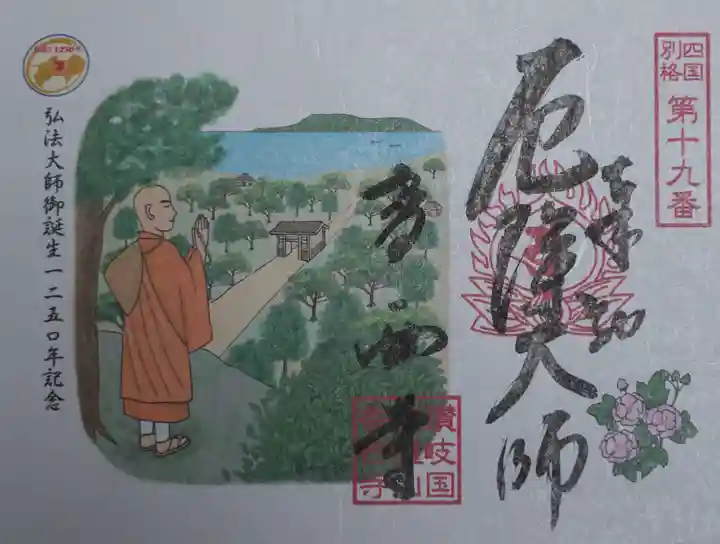 四国
別格
第十九番
奉納
厄除大師
香西寺
讃岐国
弘法大師御誕生一二五〇年記念